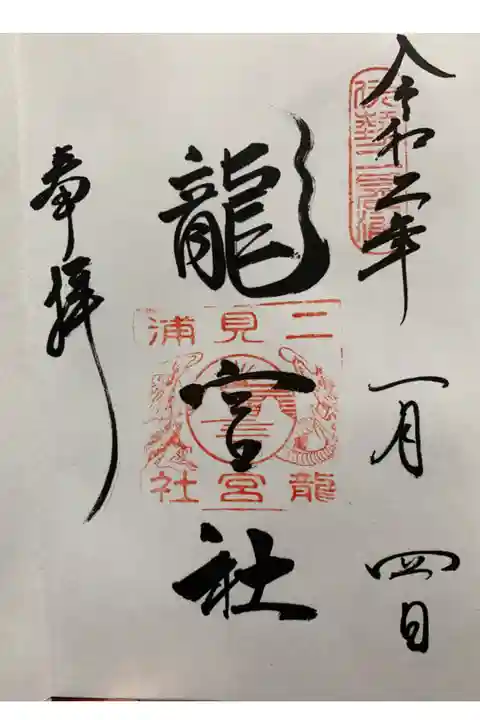 令和二年 一月 四日
龍宮社
奉拝
二見浦
龍宮社